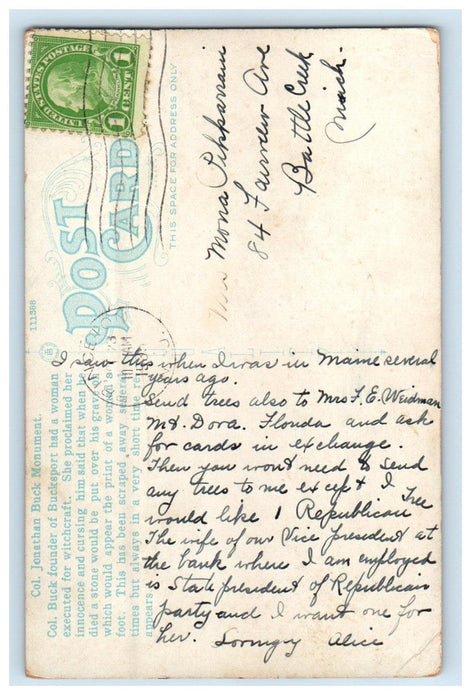 UNITED STATES POSTAGE
1 CENT 1
POST CARD
THIS SPACE FOR ADDRESS ONLY
111388
Mona
84 Fairview Ave
Battle Creek
Mich.
Col. Jonathan Buck Monument.
Col. Buck founder of Bucksport had a woman
executed for witchcraft. She proclaimed her
innocence and cursing him said that when he
died a stone would be put over his grave
which would appear the print of a woman's
foot. This has been scraped away several
times but always in a very short time re-
appears.
I saw this when I was in Maine several
years ago.
Send trees also to Mrs F. E. Weidman
Mt. Dora. Florida and ask
for cards in exchange.
Then you wont need to send
any trees to me except I
would like 1 Republican Tree
The wife of our Vice president at
the bank where I am employed
is State president of Republican
party and I want one for
her. Alice